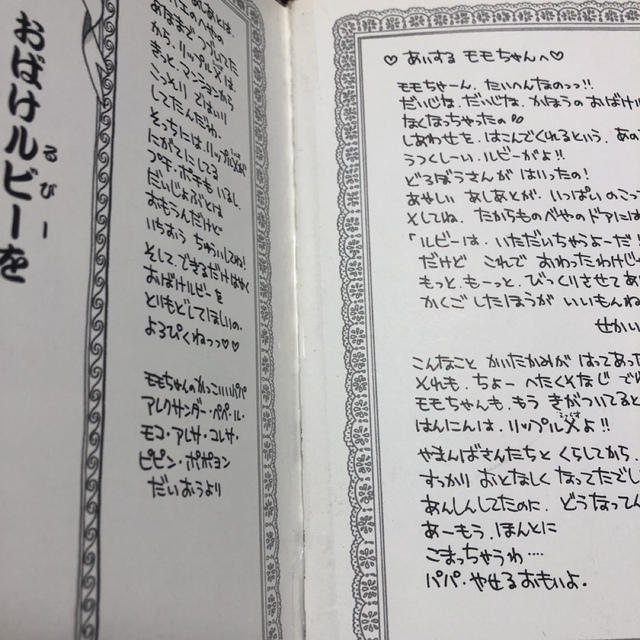 ♡ あいする モモちゃんへ ♡
モモちゃーん、たいへんなのっっ!!
だいじな、だいじな、かほうの おばけ
なくなっちゃったの
しあわせを、はこんでくれるという、あの
うつくしーい、ルビーがよ!!
どろぼうさんが はいったの!
あやしい あしあとが、いっぱい のこっ
そしてね、たからものべやのドアには
「ルビーは、いただいちゃうよーだ!
だけど これで おわったわけじ
もっと、もーっと、びっくりさせてあ
かくご したほうが いいもんね
せかい
こんなこと、かいたかみが はってあっ
それも、ちょー へたくそなじ で
モモちゃんも、もう きがついてると
はんにんは、リップルXよ!!
やまんばさんたちと くらしてから、
すっかり おとなしく なってたでし
あんしんしてたのに、どうなってん
あーもう、ほんとに
こまっちゃうわ‥‥
パパ・やせるおもいよ。
から、リップルXは
きっと、マンションから
こっそり
してたんだわ。
そっちには
にがてにしてる
ポチも いるし、
だいじょうぶとは
おもうんだけど
いちおう ちゅういしてね!
そして、できるだけはやく
おばけルビーを
とりもどしてほしいの。
よろぴくねっっ♡♡
モモちゃんのかっこいいパパ
アレクサンダー・ペペ・ル・
モコ・アレサ・コレサ・
ピピン・ポポヨン
だいおうより
おばけルビーを
るびー